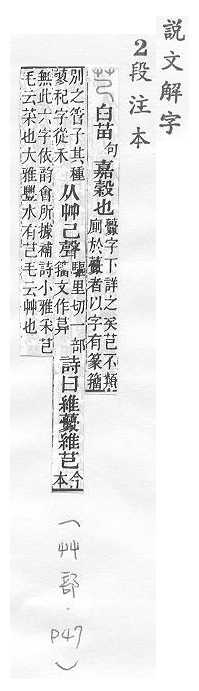 說文解字
2段注本
白苗句嘉穀也
虋字下詳之矣芑不類
廁於虋者以字有篆籒
別之管子其種
蓼杞字從禾
从艸己聲
驅里切一部
籒文作萛
詩曰維虋維芑
今
本
無此六字依韵會所據補詩小雅采芑
毛云菜也大雅豐水有芑毛云艸也
(艸部.P47)